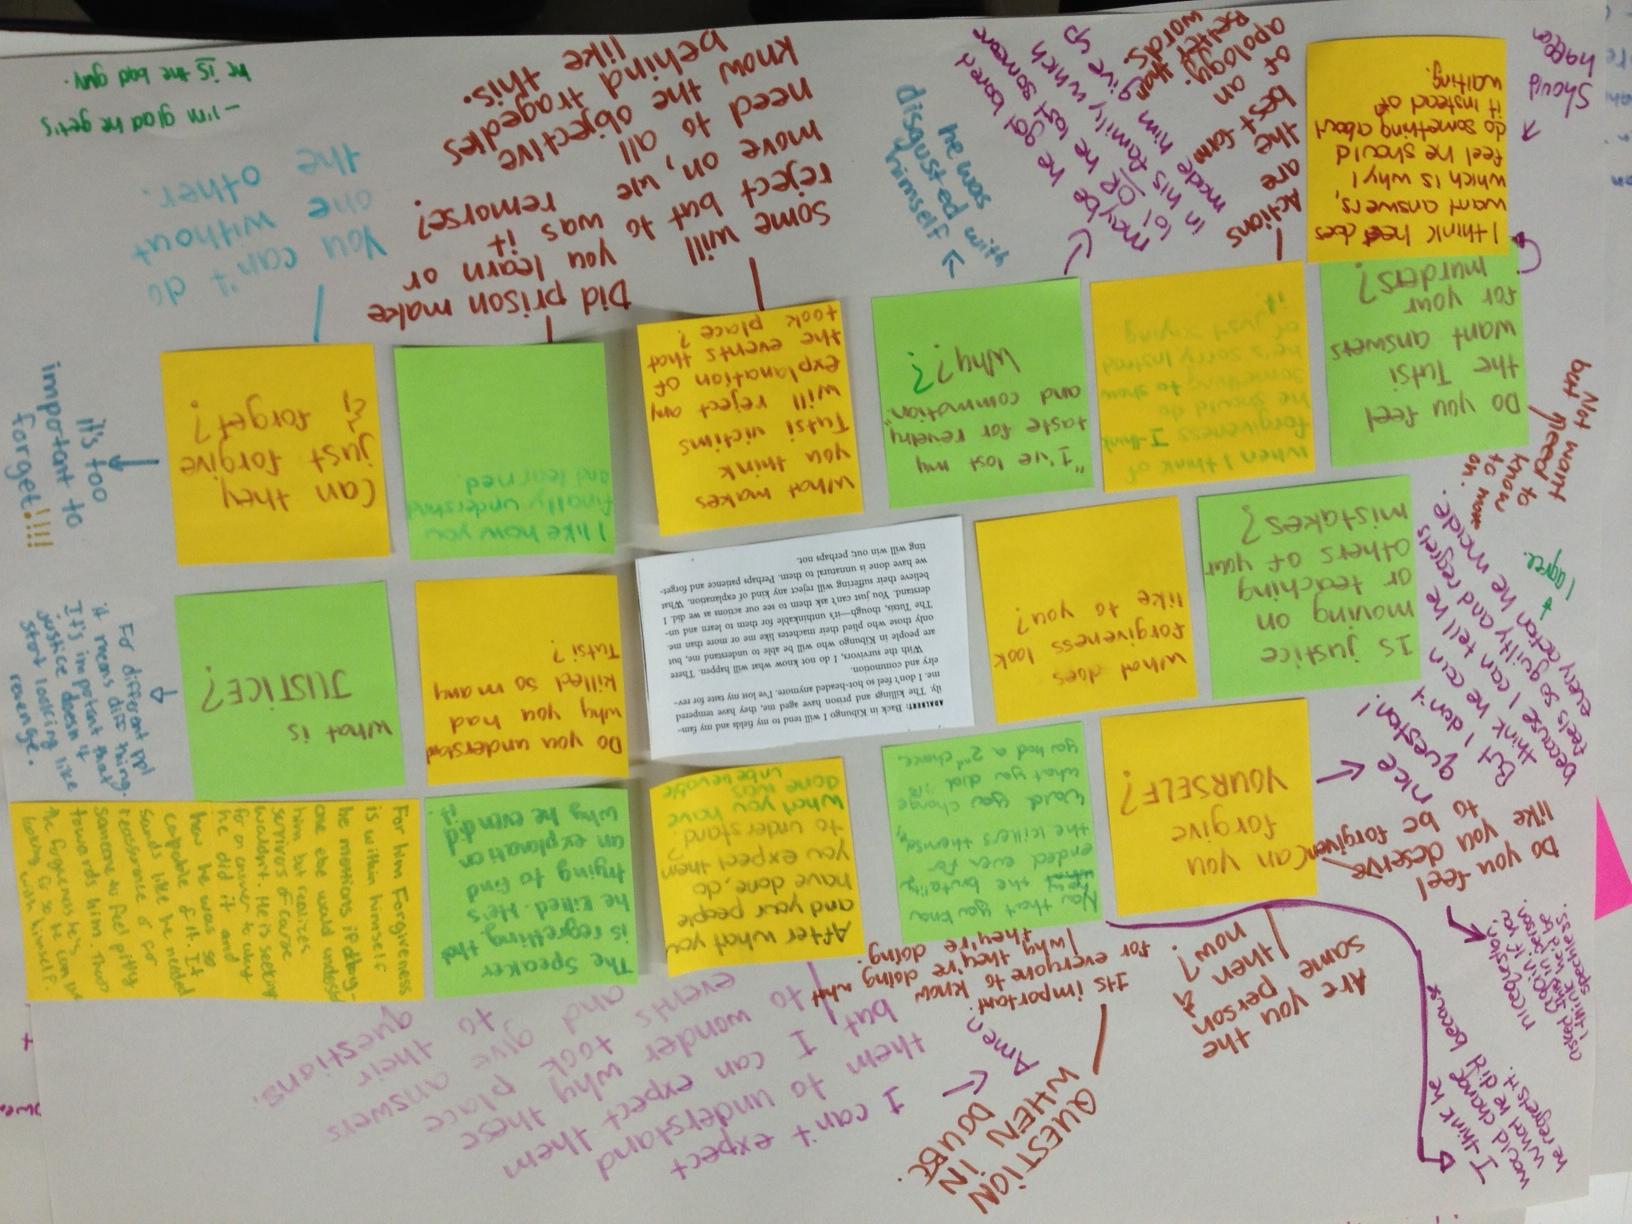 ADALBERT: Back in Kibungo I will tend to my fields and my fam-
ily. The killings and prison have aged me, they have tempered
me. I don't feel so hot-headed anymore. I've lost my taste for rev-
elry and commotion.
With the survivors, I do not know what will happen. There
are people in Kibungo who will be able to understand me, but
only those who plied their machetes like me or more than me.
The Tutsis, though—it's unthinkable for them to learn and un-
derstand. You just can't ask them to see our actions as we did. I
believe their suffering will reject any kind of explanation. What
we have done is unnatural to them. Perhaps patience and forget-
ting will win out; perhaps not.
Can you
forgive
YOURSELF?
Now that you know
the brutality
ended even for
the killers themselves,
would you change
what you did if
you had a 2nd chance.
After what you
and your people
have done, do
you expect them
to understand?
What you have
done was
unbelievable
The Speaker
is regretting that
he killed. He's
trying to find
an explanation
why he even did
it.
For him Forgiveness
is within himself
he mentions if any-
one else would understand
him but realizes
survivors of course
wouldn't. He is seeking
for an answer to why
he did it and
how he was so
capable of it. It
sounds like he needed
reassurance or for
someone to feel pitty
towards him. Thus
the forgiveness he's
looking for so he can live
with himself.
Is justice
moving on
or teaching
others of your
mistakes?
What does
forgiveness look
like to you?
Do you understand
why you had
killed so many
Tutsi?
What is
JUSTICE?
Do you feel
the Tutsi
want answers
for your
murders?
I think he does
want answers,
which is why I
feel he should
do something about
it instead of
waiting.
When I think of
forgiveness I think
he should do
something to show
he's sorry instead
of just saying
it
"I've lost my
taste for revelry
and commotion"
Why??
What makes
you think
Tutsi victims
will reject any
explanation of
the events that
took place?
I like how you
finally understand
and learned
Can they
just forgive
&
forget?
Are you
the person
same then &
now?
Its important
for everyone to know
why they're doing what
they're doing.
QUESTION
WHEN IN
DOUBT.
Amen
I can't expect
them to understand
but I can expect them
to wonder why these
events took place
and give answers
to their
questions.
Do you feel
like you deserve
to be forgiven
nice
question!
nice question.
I think he
would change
what he did because
he regrets it.
But I don't
think he can
because I can tell he
feels so guilty and regrets
every action he made.
I agree.
Not want
but need
to know
to move
on.
Should
happen
Actions
are
the best form
of an
apology.
Better than
words.
maybe he got bored
lol OR he lost someone
in his family which
made him give up
he was
disgusted with
himself
Some will
reject but to
move on, we
need to all
know the objective
behind tragedies
like this.
Did prison make
you learn or
was it
remorse?
You can't do
one without
the other.
- I'm glad he gets
he is the bad guy.
it's too
important to
forget!!!!
For different ppl
it means diff thing.
It's important that
justice doesn't
start looking like
revenge.